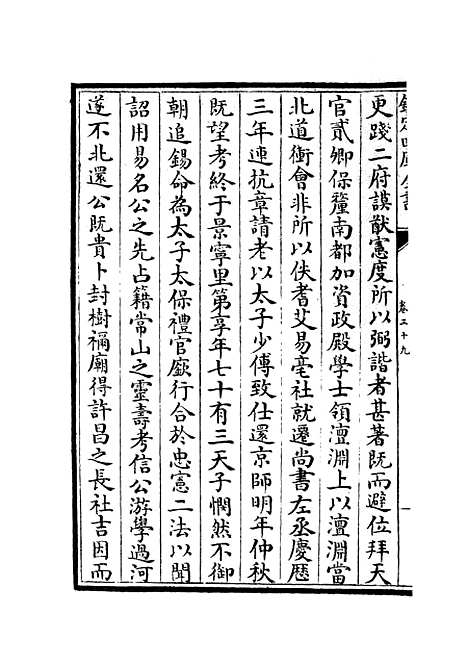 欽定四庫全書
卷三十九
更踐二府謨猷憲度所以弼諧者甚著既而避位拜天
官貳卿保釐南都加資政殿學士領澶淵上以澶淵當
北道衝會非所以佚耆艾易亳社就遷尚書左丞慶歴
三年連抗章請老以太子少傅致仕還京師明年仲秋
既望考終于景寧里第享年七十有三天子憫然不御
朝追錫命為太子太保禮官廞行合於忠憲二法以聞
詔用易名公之先占籍常山之靈壽考信公游學過河
遂不北還公既貴卜封樹禰廟得許昌之長社吉因而